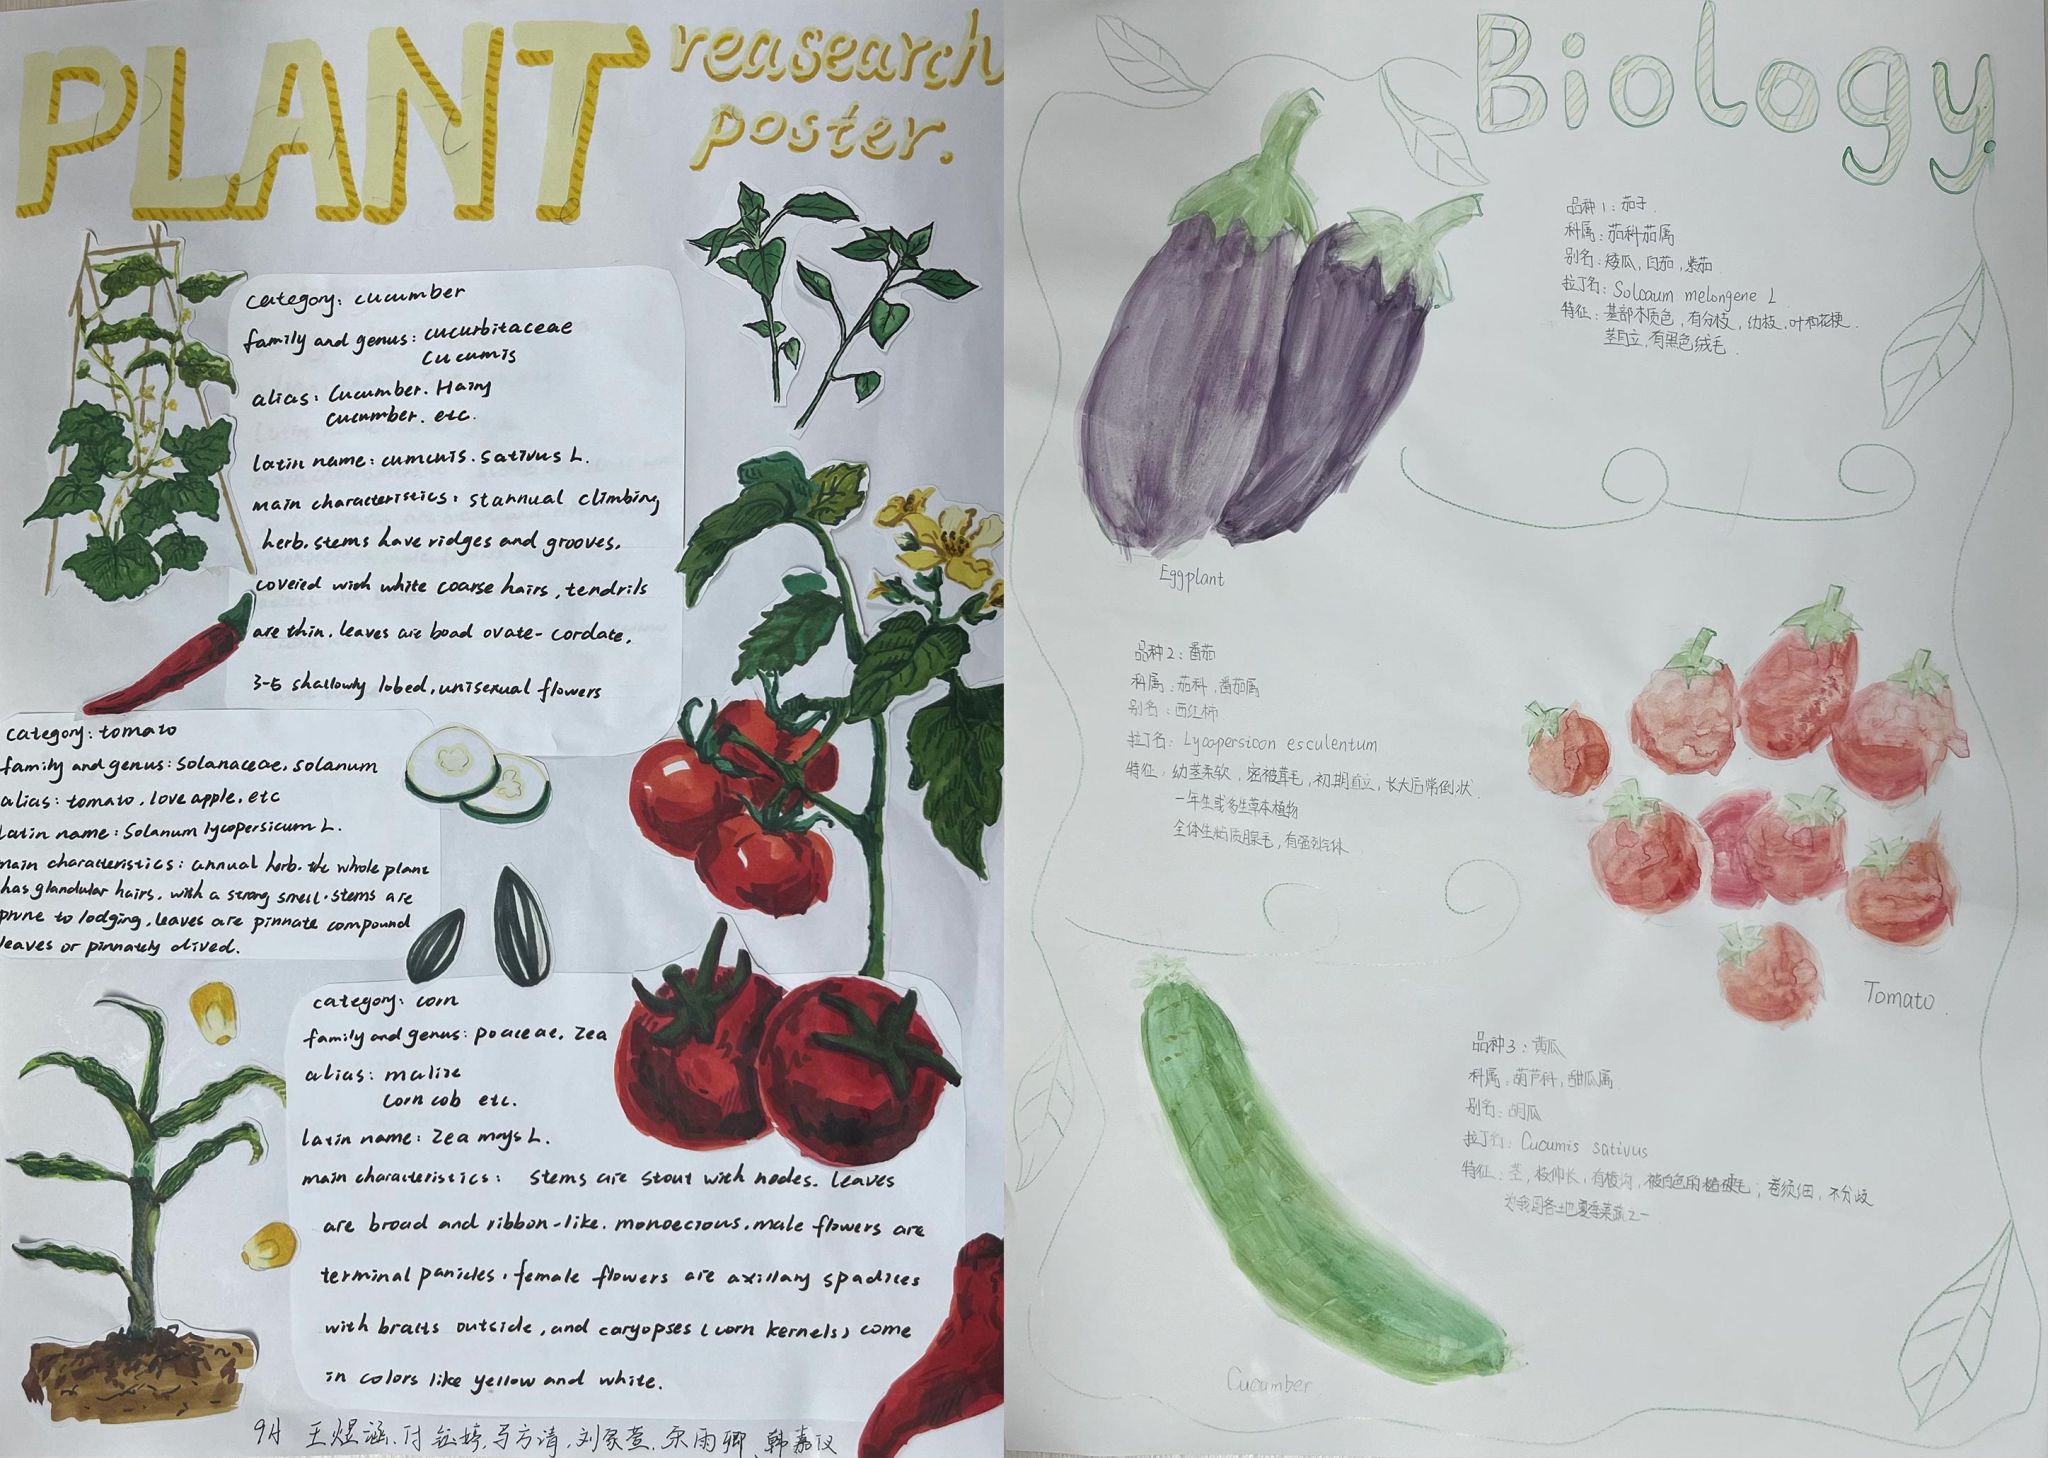 PLANT
reasearch
poster.
category: cucumber
family and genus: cucurbitaceae
Cucumis
alias: Cucumber. Hairy
cucumber. etc.
latin name: cumcuis. sativus L.
main characteristics: stannual climbing
herb. stems have ridges and grooves.
covered with white coarse hairs, tendrils
are thin. leaves are boad ovate-cordate.
3-5 shallowly lobed, unisexual flowers
category: tomato
family and genus: Solanaceae. solanum
alias: tomato. love apple. etc
Latin name: Solanum lycopersicum L.
main characteristics: annual herb. the whole plant
has glandular hairs, with a strong smell. stems are
prune to lodging, leaves are pinnate compound
leaves or pinnately dived.
category: corn
family and genus: poaceae. Zea
alias: malize
corn cob etc.
latin name: Zea mays L.
main characteristics: stems are stout with nodes. leaves
are broad and ribbon-like. monoecious. male flowers are
terminal panicles, female flowers are axillary spadices
with bracts outside, and caryopses (corn kernels) come
in colors like yellow and white.
9月 王煜涵、付钰婷、马方清、刘家萱、雨卿、韩嘉仪
Biology.
品种1: 茄子
科属: 茄科茄属
别名: 矮瓜, 白茄, 紫茄
拉丁名: Solcaum melongene L
特征: 基部木质色, 有分枝, 幼枝, 叶和花梗.
茎直立, 有黑色绒毛.
Eggplant
品种2: 番茄
科属: 茄科, 番茄属
别名: 西红柿
拉丁名: Lycopersicon esculentum
特征: 幼茎柔软, 密被茸毛, 初期直立, 长大后常倒状.
一年生或多生草本植物
全体生粘质腺毛, 有强烈气体
Tomato
品种3: 黄瓜
科属: 葫芦科, 甜瓜属
别名: 胡瓜
拉丁名: Cucumis sativus
特征: 茎, 枝伸长, 有棱沟, 被白色的糙硬毛; 卷须细, 不分歧
为我国各地夏季菜蔬之一
Cucumber